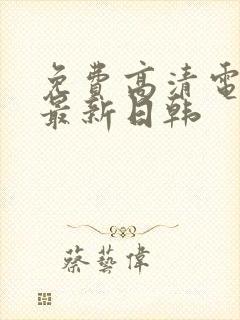 免費高清電
最新日韩
蔡藝偉